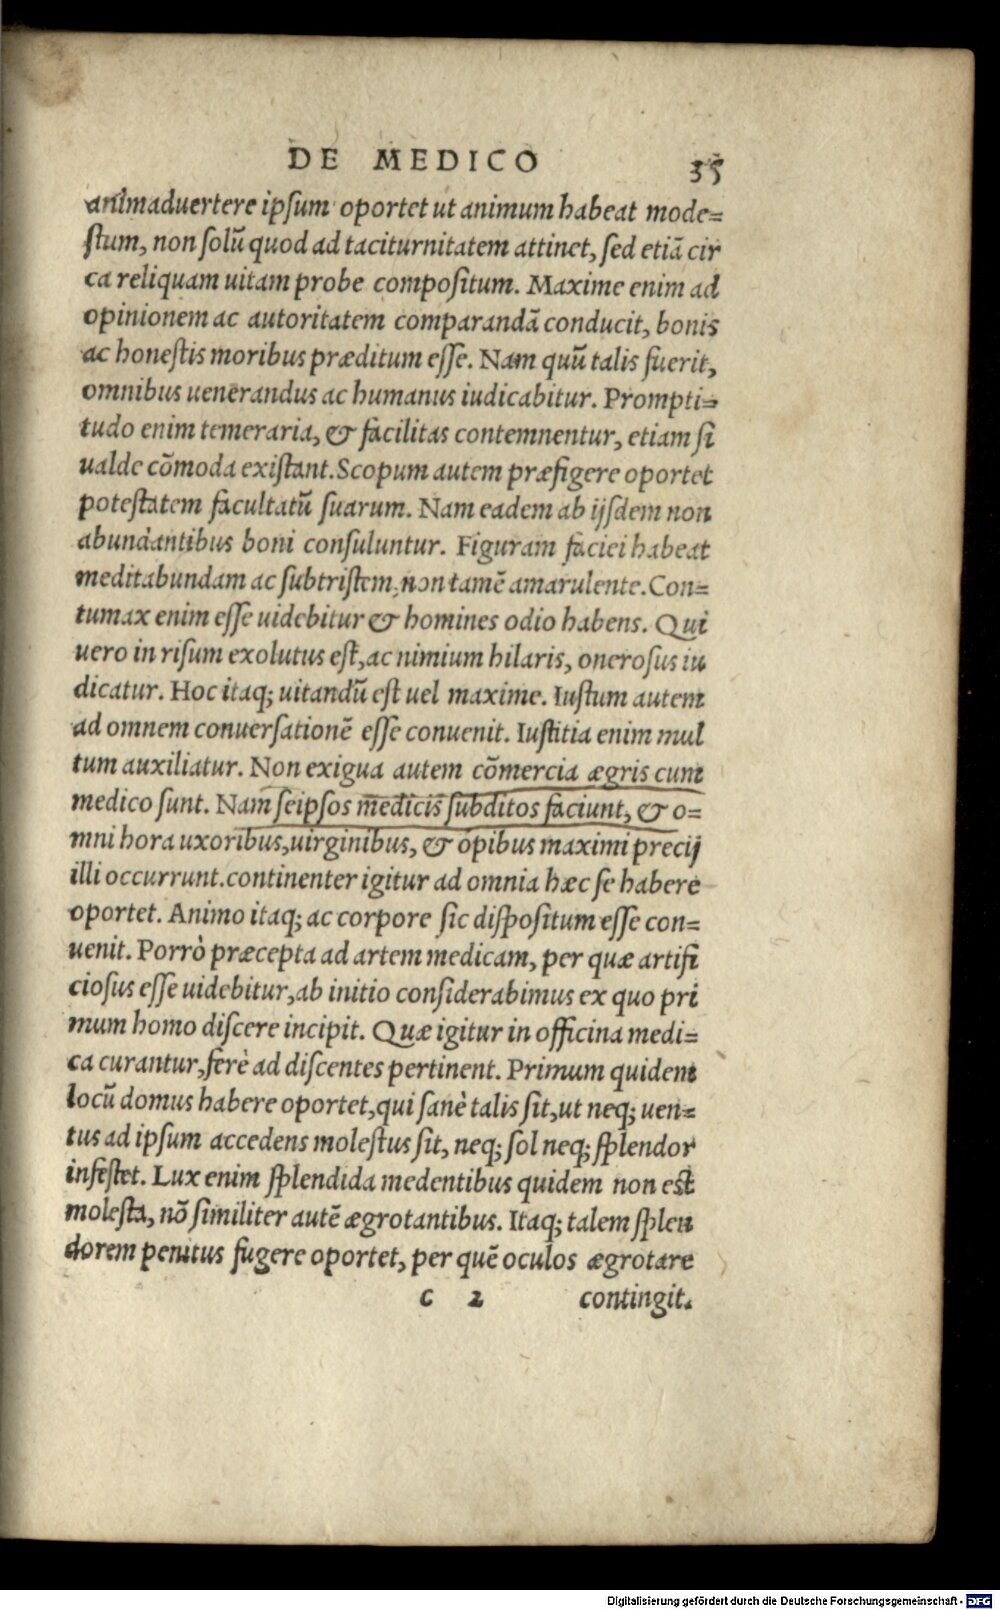 DE MEDICO 35
animaduertere ipſum oportet ut animum habeat mode=
ſtum, non ſolū quod ad taciturnitatem attinet, ſed etiā cir
ca reliquam uitam probe compoſitum. Maxime enim ad
opinionem ac autoritatem comparandā conducit, bonis
ac honeſtis moribus præditum eſſe. Nam quū talis fuerit,
omnibus uenerandus ac humanus iudicabitur. Prompti=
tudo enim temeraria, & facilitas contemnentur, etiam ſi
ualde cōmoda exiſtant. Scopum autem præfigere oportet
poteſtatem facultatū ſuarum. Nam eadem ab ijſdem non
abundantibus boni conſuluntur. Figuram faciei habeat
meditabundam ac ſubtriſtem, non tamē amarulente. Con=
tumax enim eſſe uidebitur & homines odio habens. Qui
uero in riſum exolutus eſt, ac nimium hilaris, oneroſus iu
dicatur. Hoc itaq; uitandū eſt uel maxime. Iuſtum autem
ad omnem conuerſationē eſſe conuenit. Iuſtitia enim mul
tum auxiliatur. Non exigua autem cōmercia ægris cum
medico ſunt. Nam ſeipſos medicis ſubditos faciunt, & o=
mni hora uxoribus, uirginibus, & opibus maximi precij
illi occurrunt. continenter igitur ad omnia hæc ſe habere
oportet. Animo itaq; ac corpore ſic diſpoſitum eſſe con=
uenit. Porrò præcepta ad artem medicam, per quæ artifi
cioſus eſſe uidebitur, ab initio conſiderabimus ex quo pri
mum homo diſcere incipit. Quæ igitur in officina medi=
ca curantur, ferè ad diſcentes pertinent. Primum quidem
locū domus habere oportet, qui ſanè talis ſit, ut neq; uen=
tus ad ipſum accedens moleſtus ſit, neq; ſol neq; ſplendor
infeſtet. Lux enim ſplendida medentibus quidem non eſt
moleſta, nō ſimiliter autē ægrotantibus. Itaq; talem ſplen
dorem penitus fugere oportet, per quē oculos ægrotare
c 2 contingit.
Digitalisierung gefördert durch die Deutsche Forschungsgemeinschaft - DFG